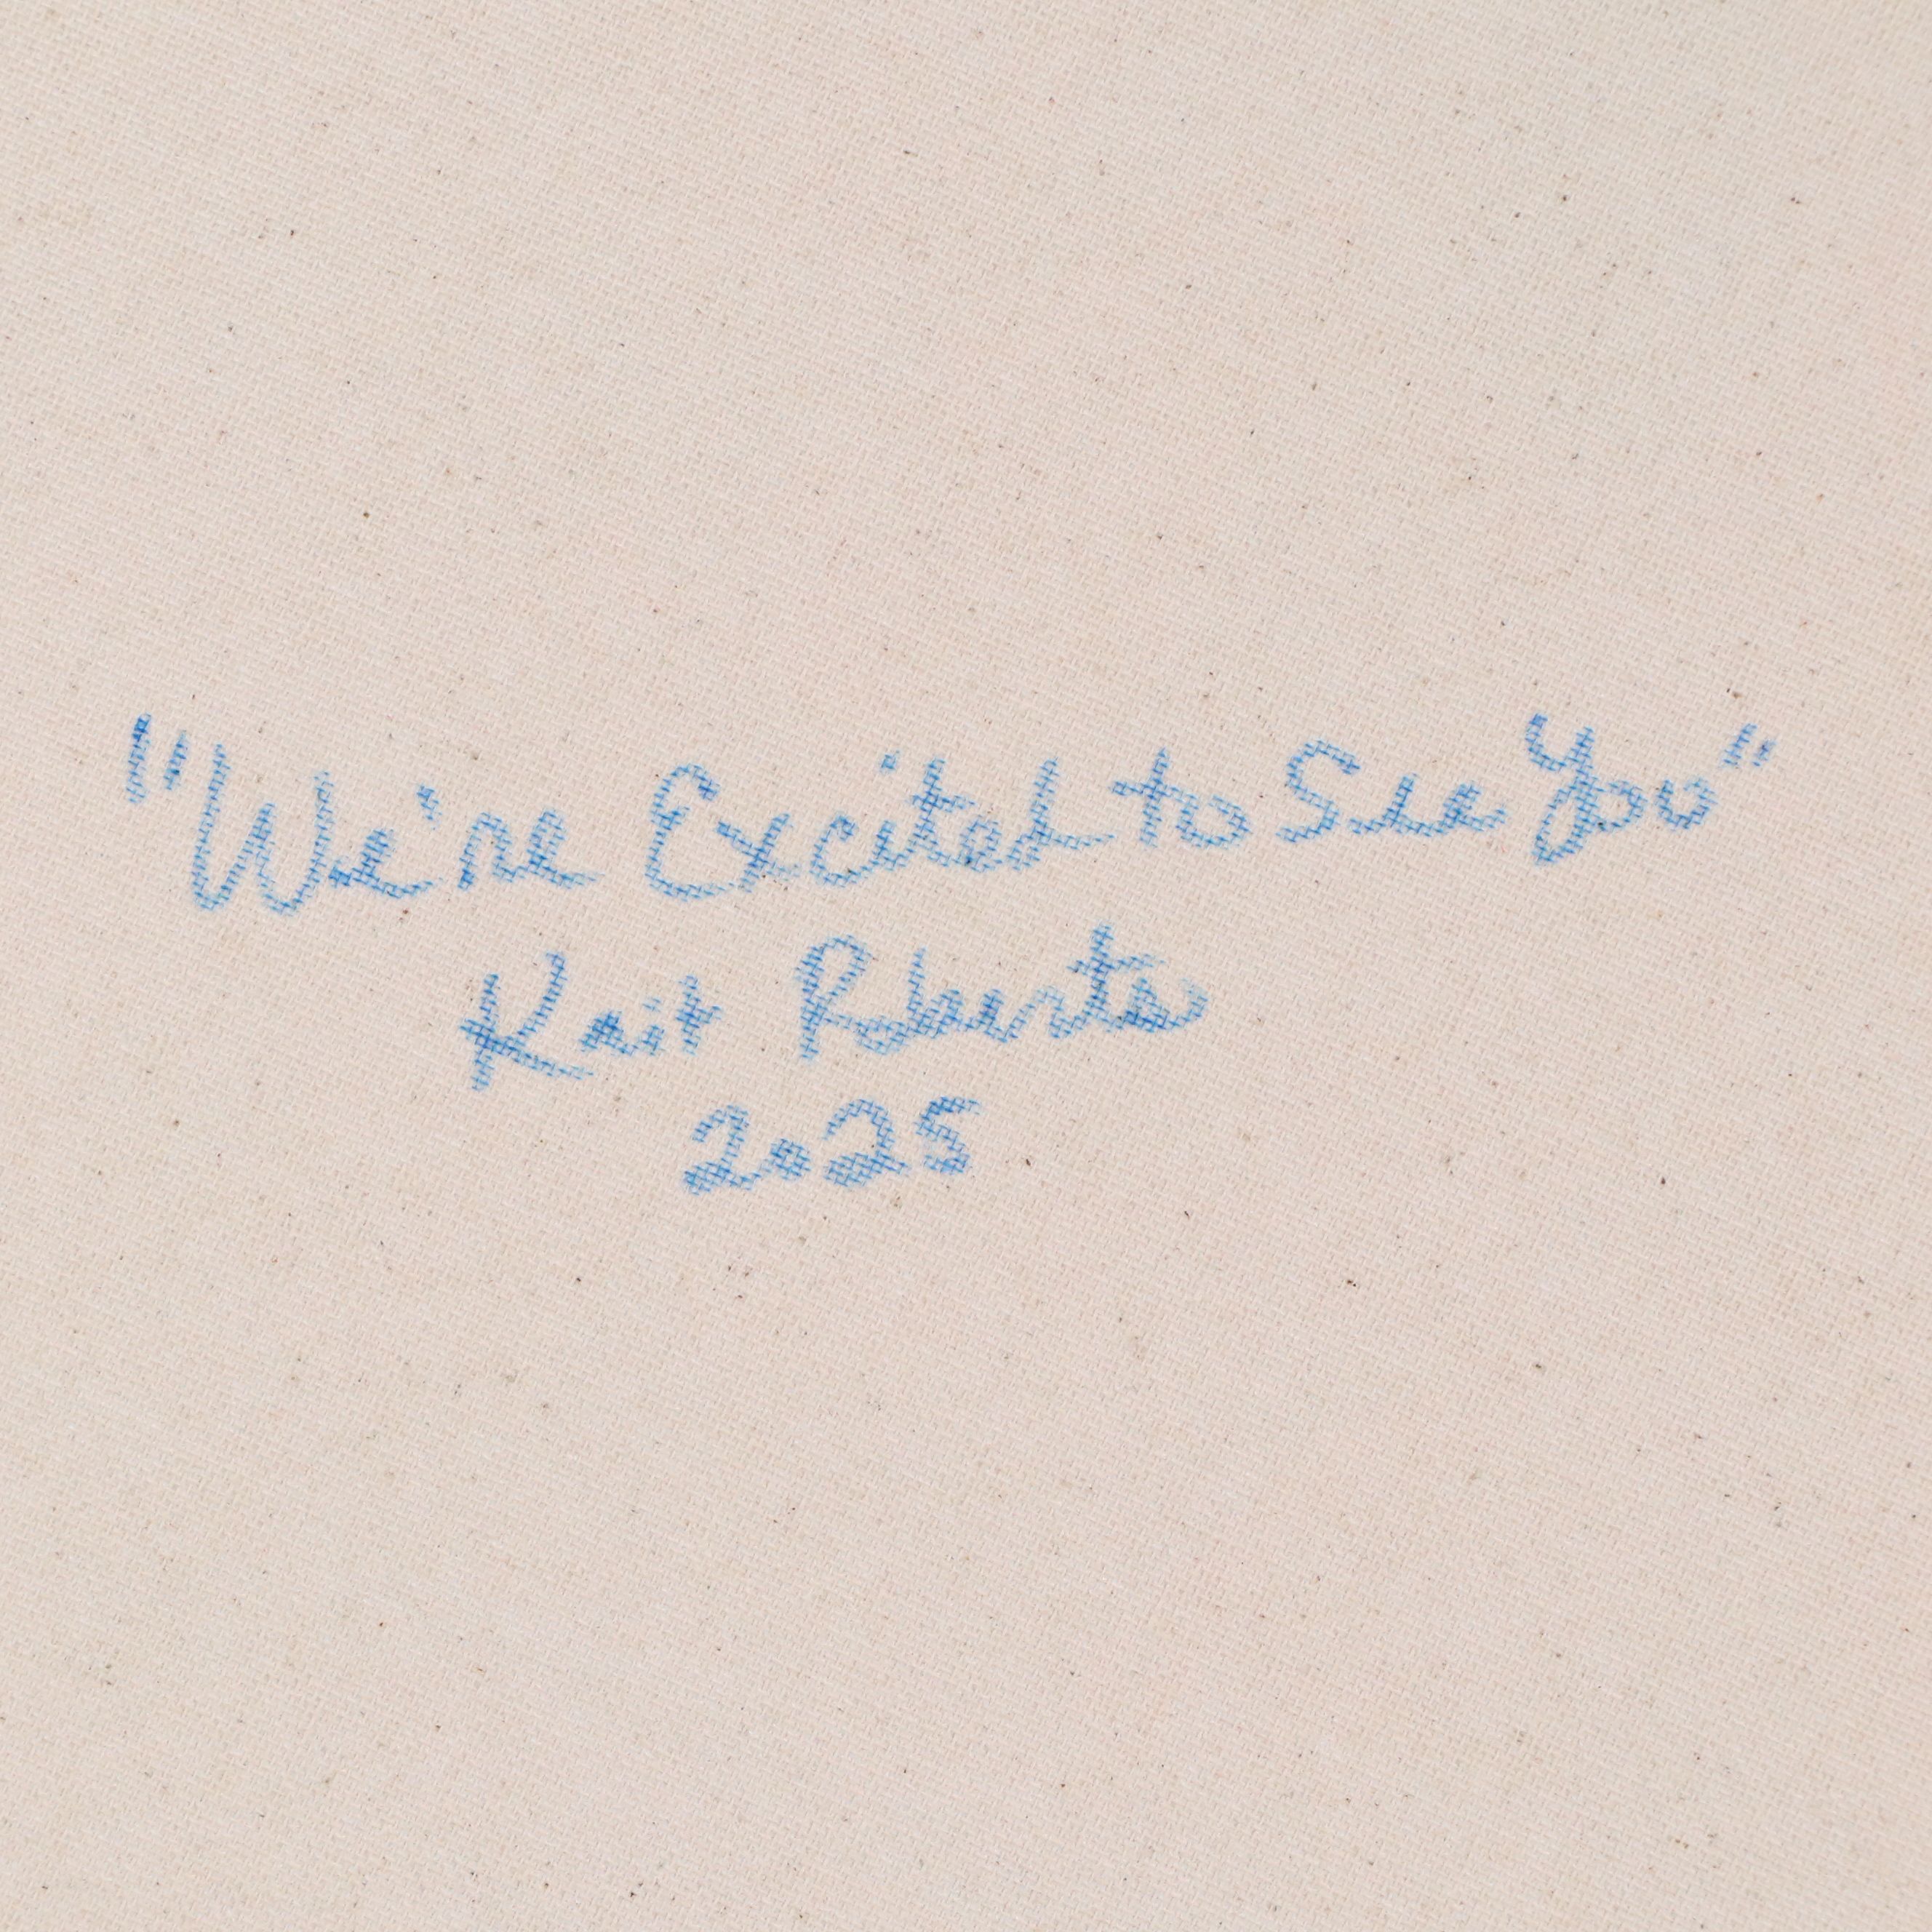 "We're Excited to See You"
Kait Roberts
2025